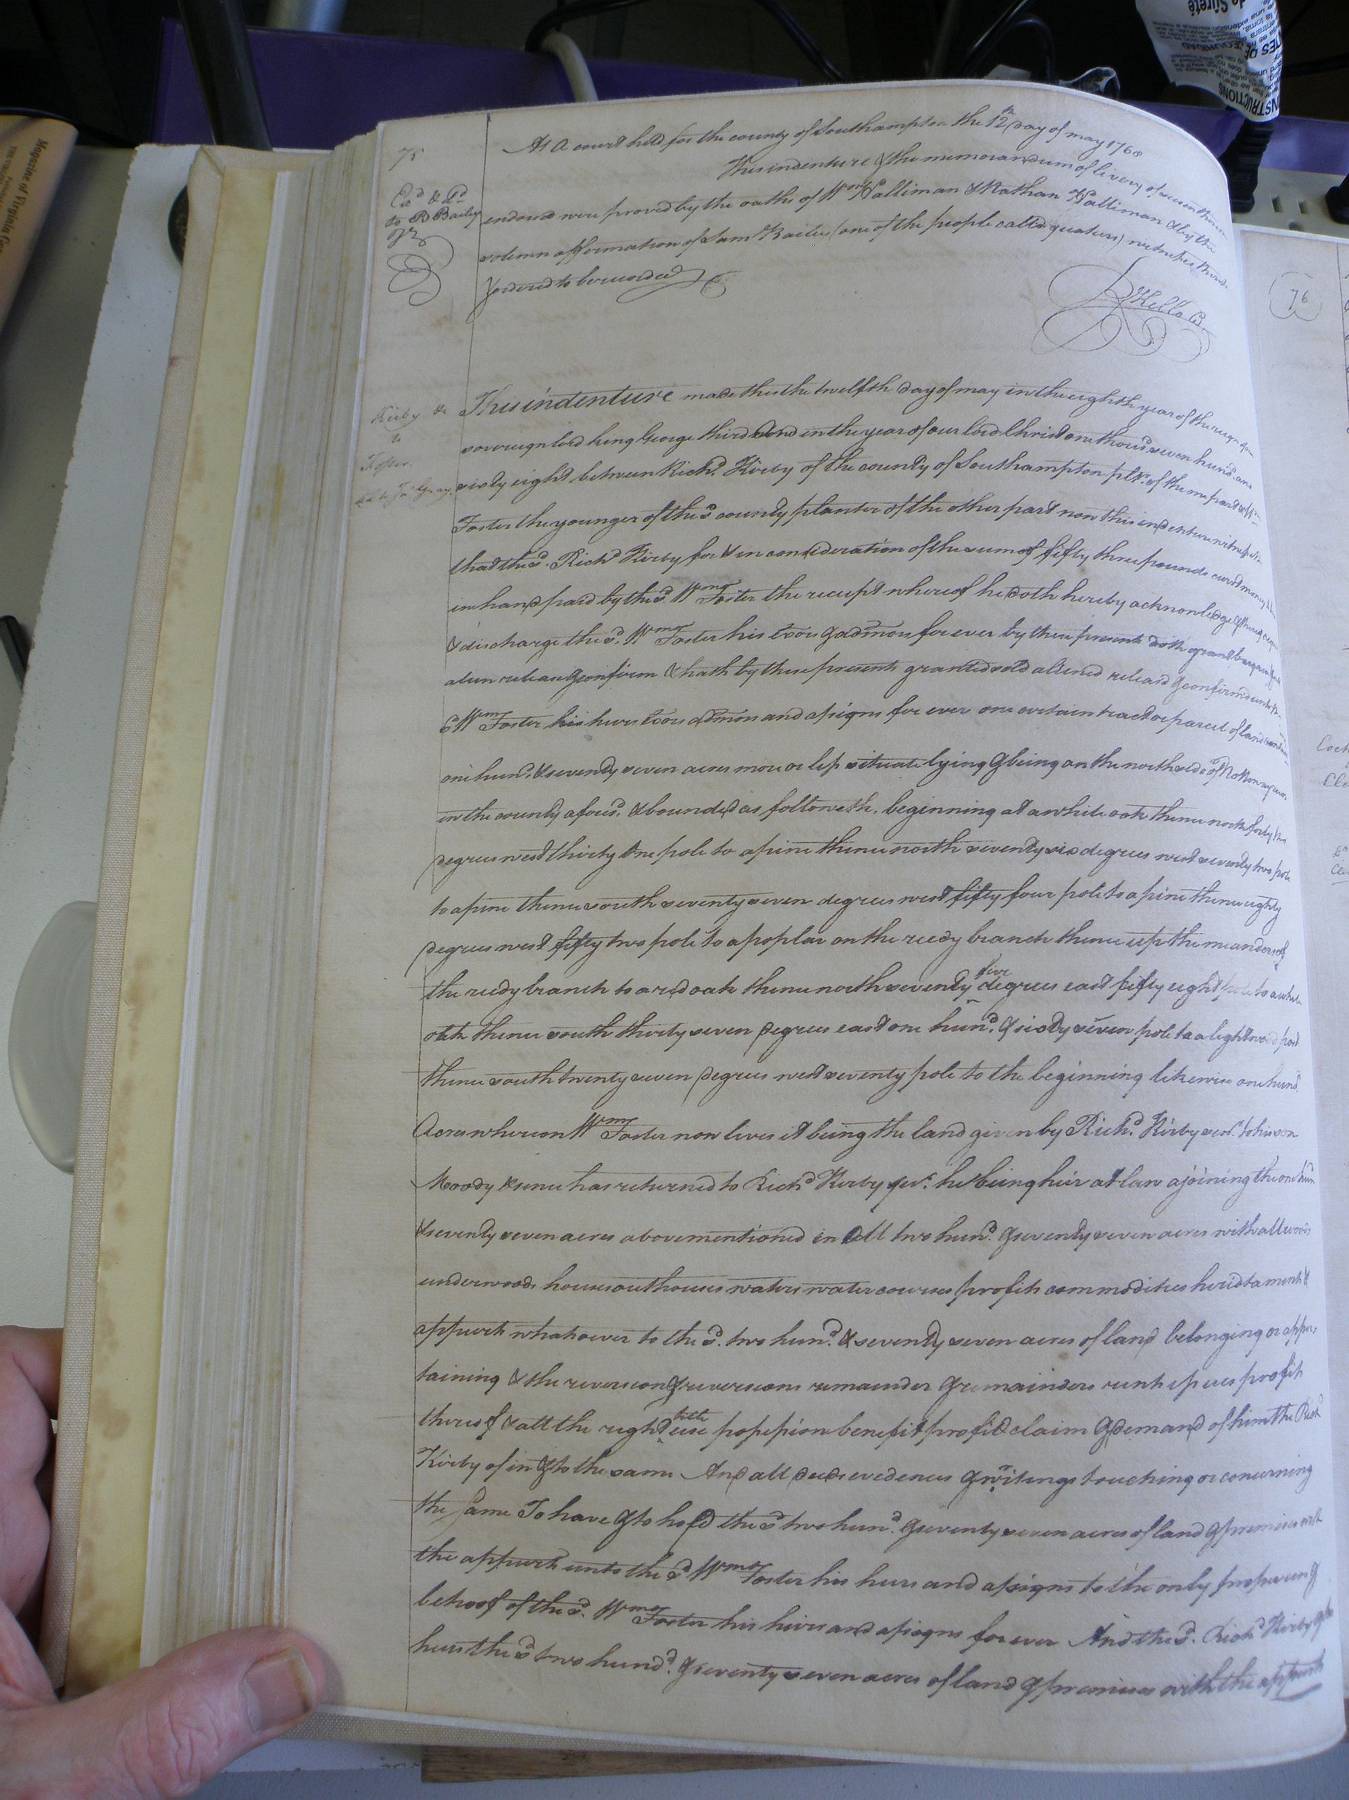 75
Exd & Dd
to B Bailey
At a court held for the county of Southampton the 12th day of may 1768
This indenture & the memorandum of livery of seisin thereon
endorsed were proved by the oaths of Wm Balliman & Nathan Balliman & by the
solemn affirmation of Saml Bailey (one of the people called quakers) witnesses thereto
& ordered to be recorded
R Kello Cl.
Kirby &c
to
Foster
This indenture made this the twelfth day of may in the eighth year of the reign of our
sovereign lord king George third and in the year of our lord Christ one thousd seven hund. and
sixty eight between Richd. Kirby of the county of Southampton pltr. of the one part & Wm
Foster the younger of the sd county planter of the other part now this indenture witnesseth
that the sd. Richd Kirby for & in consideration of the sum of fifty three pounds currt money
in hand paid by the sd. Wm Foster the receipt whereof he doth hereby acknowledge &
& discharge the sd. Wm Foster his exors & admors for ever by these presents doth grant bargain
alien release & confirm & hath by these presents granted sold aliened released & confirmed unto the
sd Wm Foster his heirs exors admors and assigns for ever one certain tract or parcel of land
one hund. & seventy seven acres more or less situate lying & being on the north side of Nottoway
in the county aforesd. & bounded as followeth, beginning at a white oak thence north forty
degrees west thirty one pole to a pine thence north seventy six degrees west seventy two pole
to a pine thence south seventy seven degrees west fifty four pole to a pine thence eighty
degrees west fifty two pole to a poplar on the reedy branch thence up the meanders of
the reedy branch to a red oak thence north seventy five degrees east fifty eight pole to a white
oak thence south thirty seven degrees east one hund. & sixty seven pole to a lightwood post
thence south twenty seven degrees west seventy pole to the beginning likewise one hund
Acres whereon Wm Foster now lives it being the land given by Richd. Kirby senr. to his son
Moody & since has returned to Richd Kirby he being heir at law ajoining the one hun
& seventy seven acres above mentioned in all two hund. & seventy seven acres with all woods
underwoods houses outhouses waters water courses profits commodities heriditaments &
appurts whatsoever to the sd. two hund. & seventy seven acres of land belonging or apper
taining & the reversion & reversions remainder & remainders rents issues profits
thereof & all the right title use possession benefit profit claim & demand of him the Richd
Kirby of in & to the same And all deeds evedences & writings touching or concerning
the same To have & to hold the sd two hund. & seventy seven acres of land & premises with
the appurts unto the sd Wm Foster his heirs and assigns to the only proper use &
behoof of the sd. Wm Foster his heirs and assigns for ever And the sd. Richd Kirby & his
heirs the sd two hund. & seventy seven acres of land & premises with the appurts
76
Magazine of Virginia
de Sûreté
INSTRUCTIONS